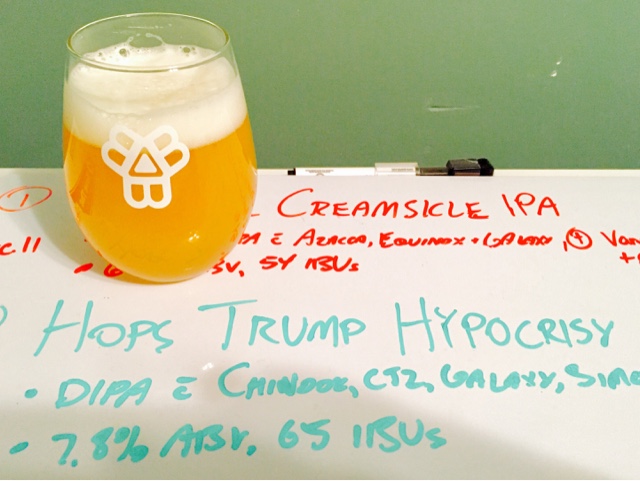 ① CREAMSICLE IPA
AZACCA, EQUINOX + GALAXY, ④
54 IBUs
HOPS TRUMP HYPOCRISY
• DIPA c̄ CHINOOK, CTZ, GALAXY,
• 7.8% ABV, 65 IBUs